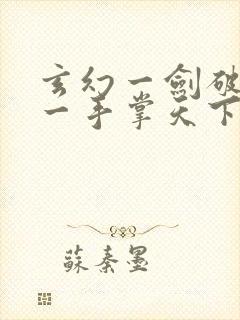 玄幻一劍破
一手掌天下
蘇秦墨